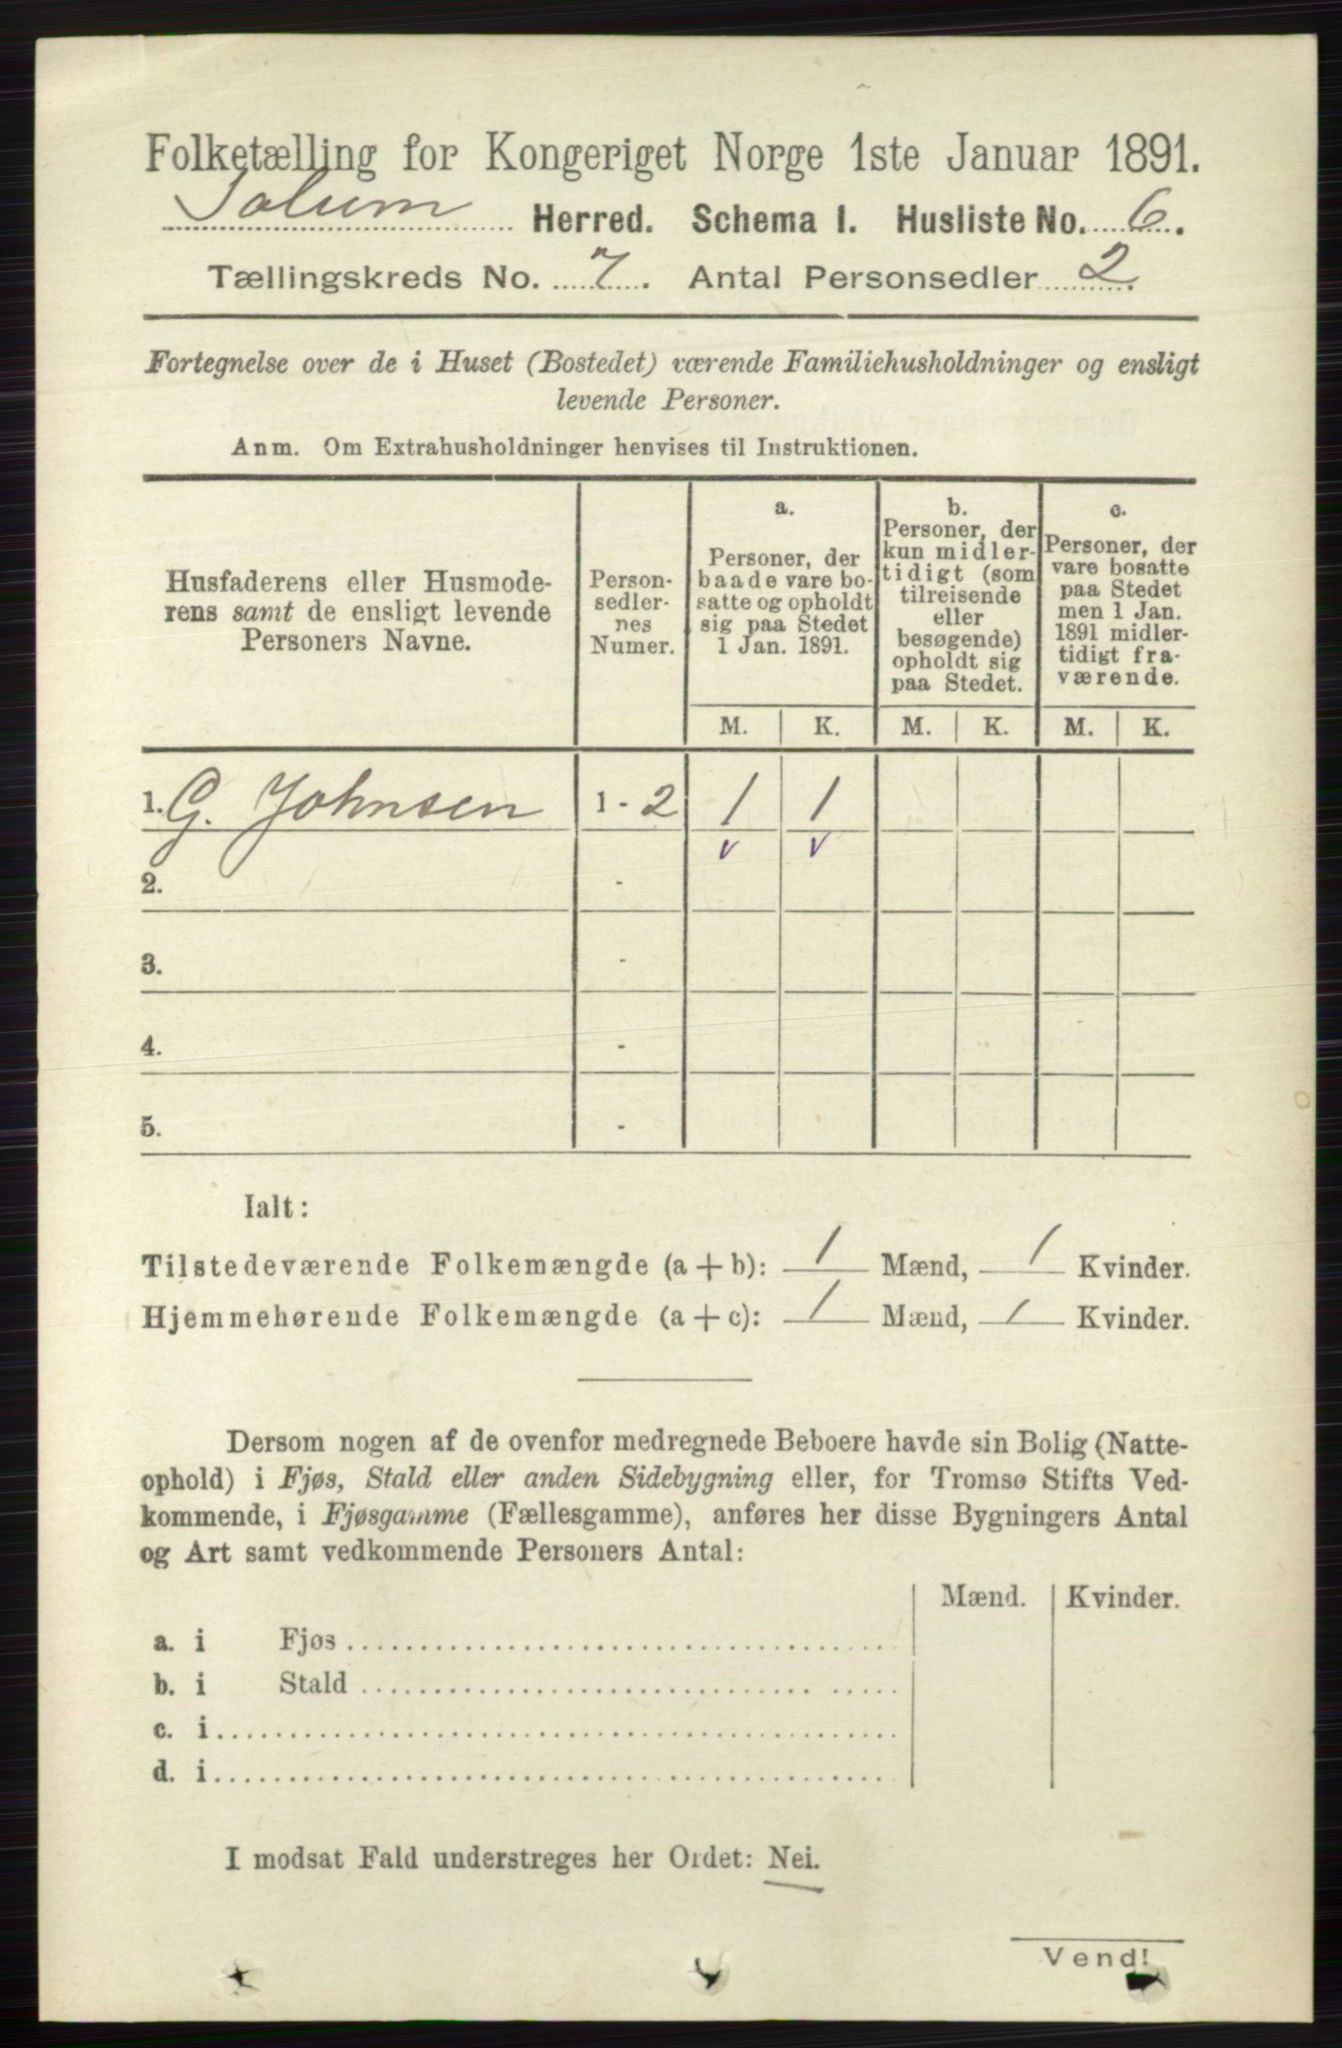 Folketælling for Kongeriget Norge 1ste Januar 1891.
Solum Herred. Schema I. Husliste No. 6.
Tællingskreds No. 7. Antal Personsedler 2.
Fortegnelse over de i Huset (Bostedet) værende Familiehusholdninger og ensligt
levende Personer.
Anm. Om Extrahusholdninger henvises til Instruktionen.
Husfaderens eller Husmode-
rens samt de ensligt levende
Personers Navne.
Person-
sedler-
nes
Numer.
a.
Personer, der
baade vare bo-
satte og opholdt
sig paa Stedet
1 Jan. 1891.
b.
Personer, der
kun midler-
tidigt (som
tilreisende
eller
besøgende)
opholdt sig
paa Stedet.
c.
Personer, der
vare bosatte
paa Stedet
men 1 Jan.
1891 midler-
tidigt fra-
værende.
M. K. M. K. M. K.
1. G. Johnsen 1 - 2 1 1
v v
2. -
3. -
4. -
5. -
Ialt:
Tilstedeværende Folkemængde (a + b): 1 Mænd, 1 Kvinder.
Hjemmehørende Folkemængde (a + c): 1 Mænd, 1 Kvinder.
Dersom nogen af de ovenfor medregnede Beboere havde sin Bolig (Natte-
ophold) i Fjøs, Stald eller anden Sidebygning eller, for Tromsø Stifts Ved-
kommende, i Fjøsgamme (Fællesgamme), anføres her disse Bygningers Antal
og Art samt vedkommende Personers Antal:
Mænd. Kvinder.
a. i Fjøs
b. i Stald
c. i
d. i
I modsat Fald understreges her Ordet: Nei.
Vend!